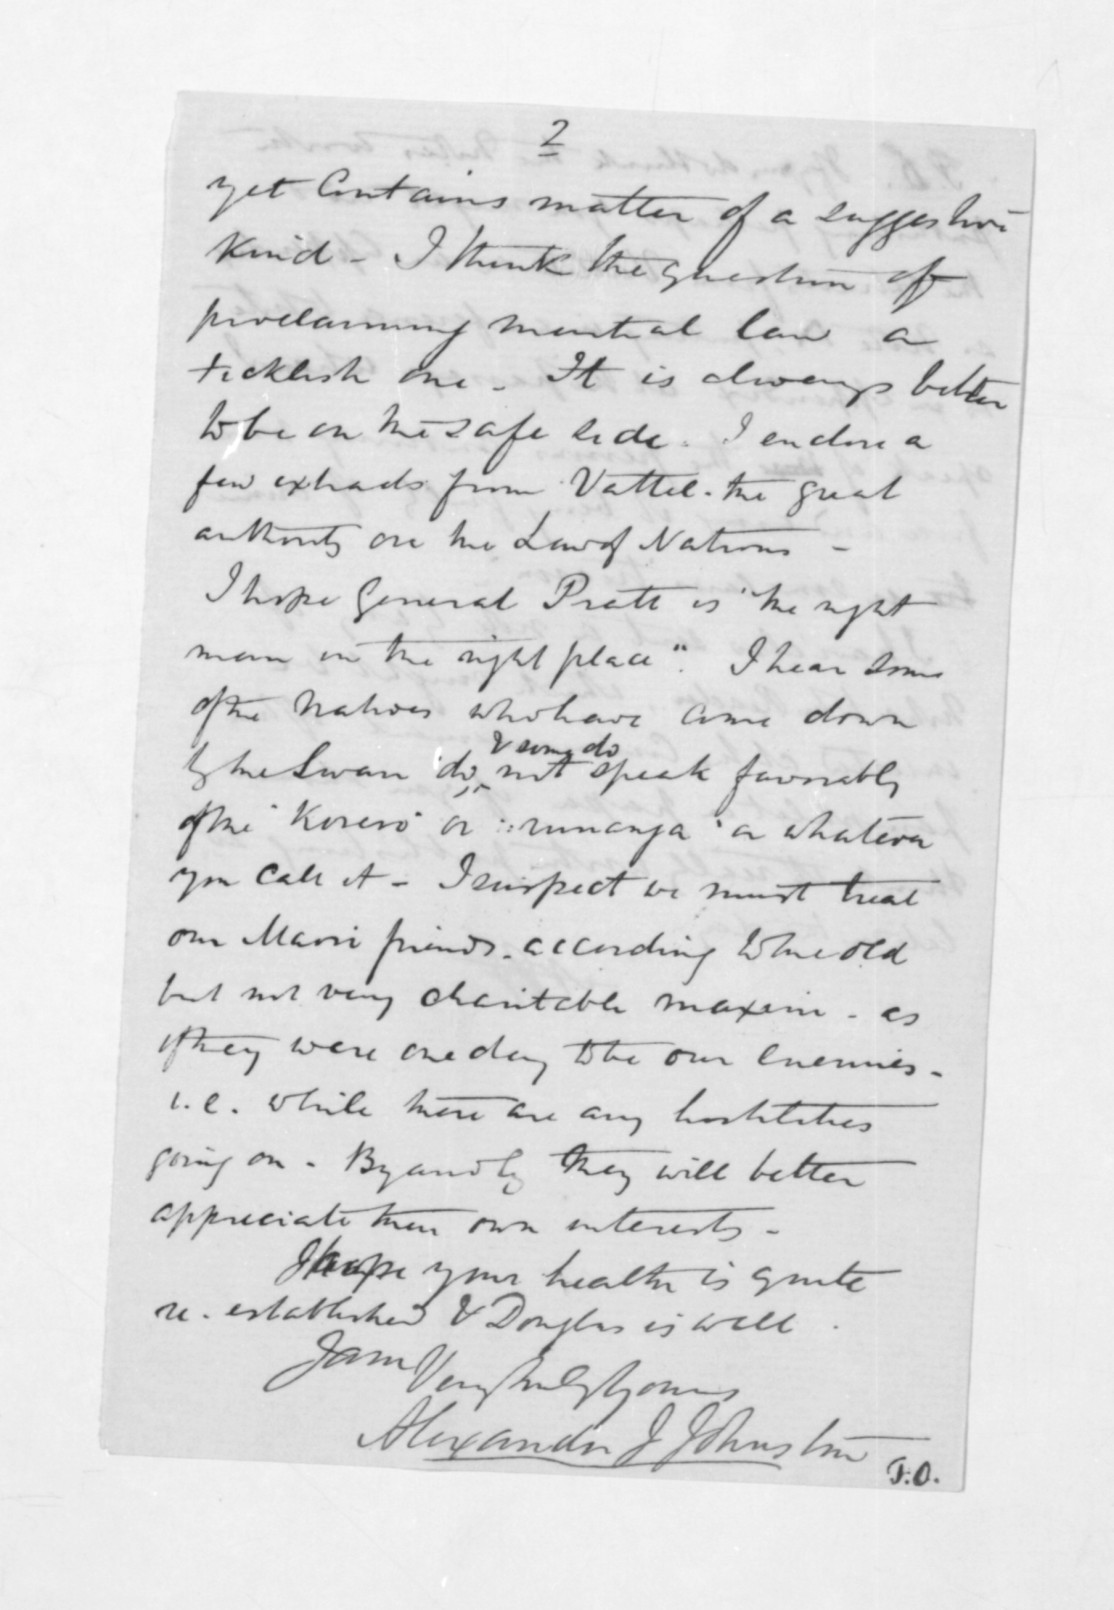 2
yet contains matter of a suggestive
kind - I think the question of
proclaiming martial law a
ticklish one - It is always better
to be on the safe side. I enclose a
few extracts from Vattel - the great
authority on the Law of Nations -
I hope General Pratt is "the right
man in the right place". I hear some
of the Natives who have come down
& some do
by the Swan do, not speak favorably
of the "Korero" or "runanga" or whatever
you call it - I suspect we must treat
our Maori friends - according to the old
but not very charitable maxim - as
if they were one day to be our enemies -
i.e. while there are any hostilities
going on - By and by they will better
appreciate their own interests -
I hope your health is quite
re-established & Douglas is well.
I am
Very truly yours
Alexander J Johnston
T.O.